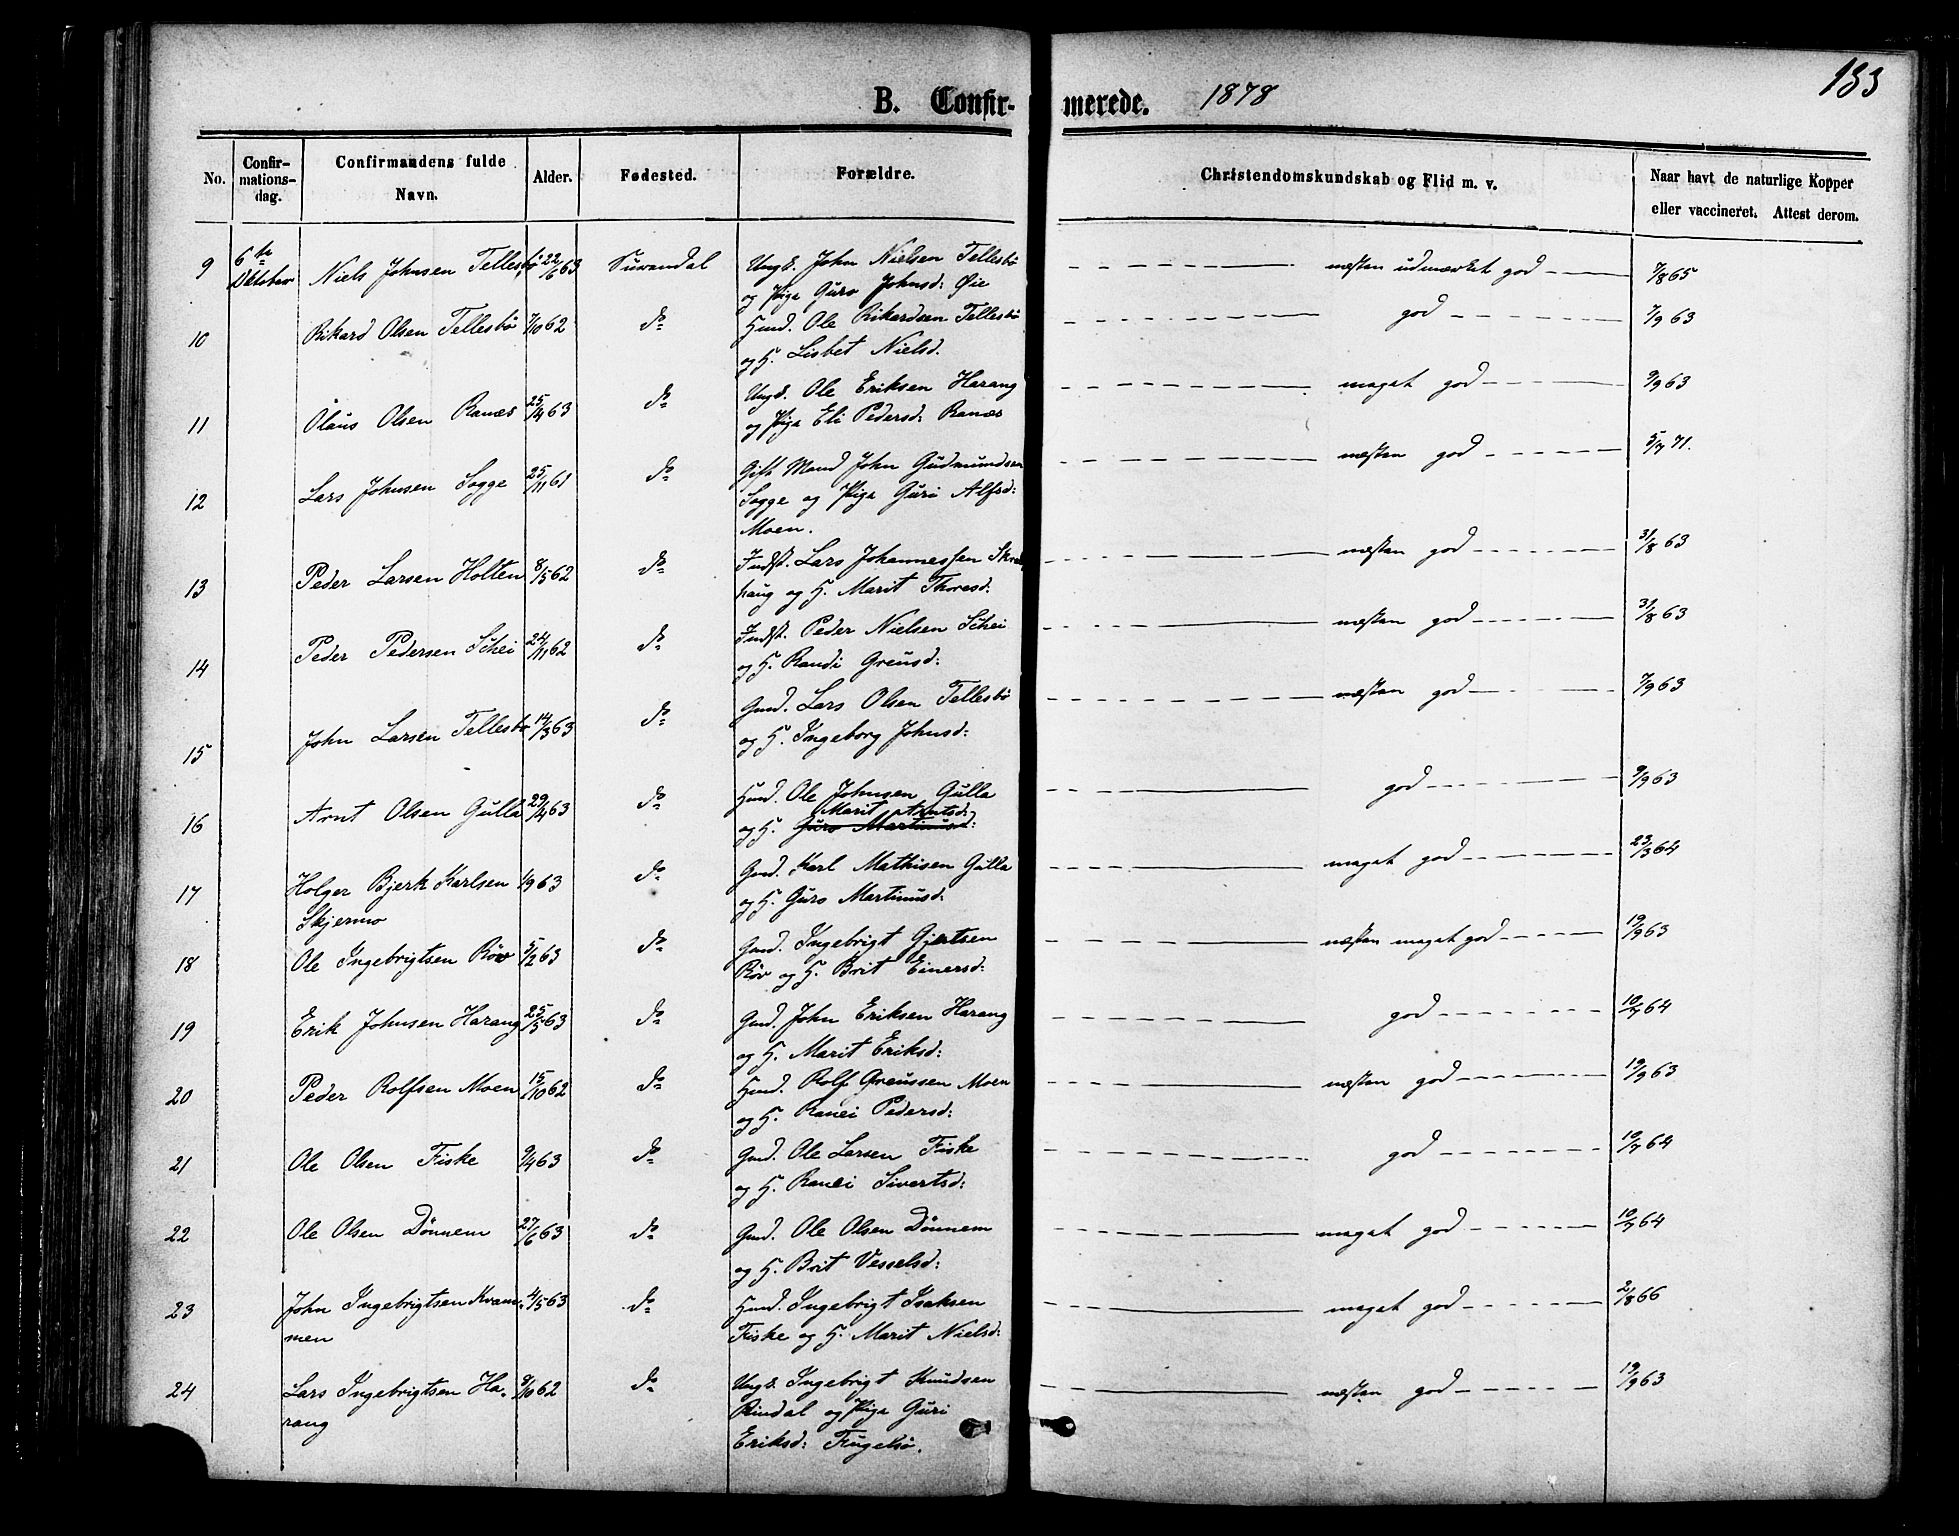 183
B. Confirmerede. 1878
No. Confirmationsdag. Confirmandens fulde Navn. Alder. Fødested. Forældre. Christendomskundskab og Flid m. v. Naar havt de naturlige Kopper eller vaccineret. Attest derom.
9 6te Oktober Niels Johnsen Tellesbö 22/6 63 Surendal Ungk. John Nielsen Tellesbö næsten udmærket god 7/8 65
og Pige Guro Johnsd: Øie
10 Rikard Olsen Tellesbö 7/10 62 do Husmd. Ole Rikardsen Tellesbö god 7/9 63
og H. Lisbet Nielsd.
11 Olaus Olsen Ranæs 25/4 63 do Ungk. Ole Eriksen Harang meget god 9/9 63
og Pige Eli Pedersd: Ranæs
12 Lars Johnsen Sogge 25/11 61 do Gift Mand John Gudmundsen næsten god 5/7 71.
Sogge og Pige Guri Alfsd:
Moen.
13 Peder Larsen Holten 8/5 62 do Indst. Lars Johannessen næsten god 31/8 63
haug og H. Marit Thoresd:
14 Peder Pedersen Schei 24/11 62 do Indst. Peder Nielsen Schei næsten god 31/8 63
og H. Randi Greusd:
15 John Larsen Tellesbö 14/3 63 do Gmd. Lars Olsen Tellesbö næsten god 7/9 63
og H. Ingeborg Johnsd:
16 Arnt Olsen Gulla 29/4 63 do Hmd. Ole Johnsen Gulla god 9/9 63
Marit Arntsd:
og H. Guro Martinusd:
17 Holger Bjerk Karlsen 1/9 63 do Gmd. Karl Mathisen Gulla meget god 23/3 64
Skjermo og H. Guro Martinusd:
18 Ole Ingebrigtsen Röv 5/2 63 do Gmd. Ingebrigt Gjertsen næsten meget god 19/9 63
Röv og H. Brit Einersd:
19 Erik Johnsen Harang 25/5 63 do Gmd. John Eriksen Harang god 10/7 64
og H. Marit Eriksd:
20 Peder Rolfsen Moen 15/10 62 do Hmd. Rolf Greussen Moen næsten god 19/9 63
og H. Ranei Pedersd:
21 Ole Olsen Fiske 9/4 63 do Gmd. Ole Larsen Fiske god 10/7 64
og H. Ranei Sivertsd:
22 Ole Olsen Dönnem 27/6 63 do Gmd. Ole Olsen Dönnem meget god 10/7 64
og H. Brit Vesselsd:
23 John Ingebrigtsen Kvam- 4/5 63 do Hmd. Ingebrigt Isaksen meget god 2/8 66
men Fiske og H. Marit Nielsd:
24 Lars Ingebrigtsen Ha- 9/10 62 do Ungk. Ingebrigt Knudsen næsten god 19/9 63
rang Rindal og Pige Guri
Eriksd: Fugelsö.